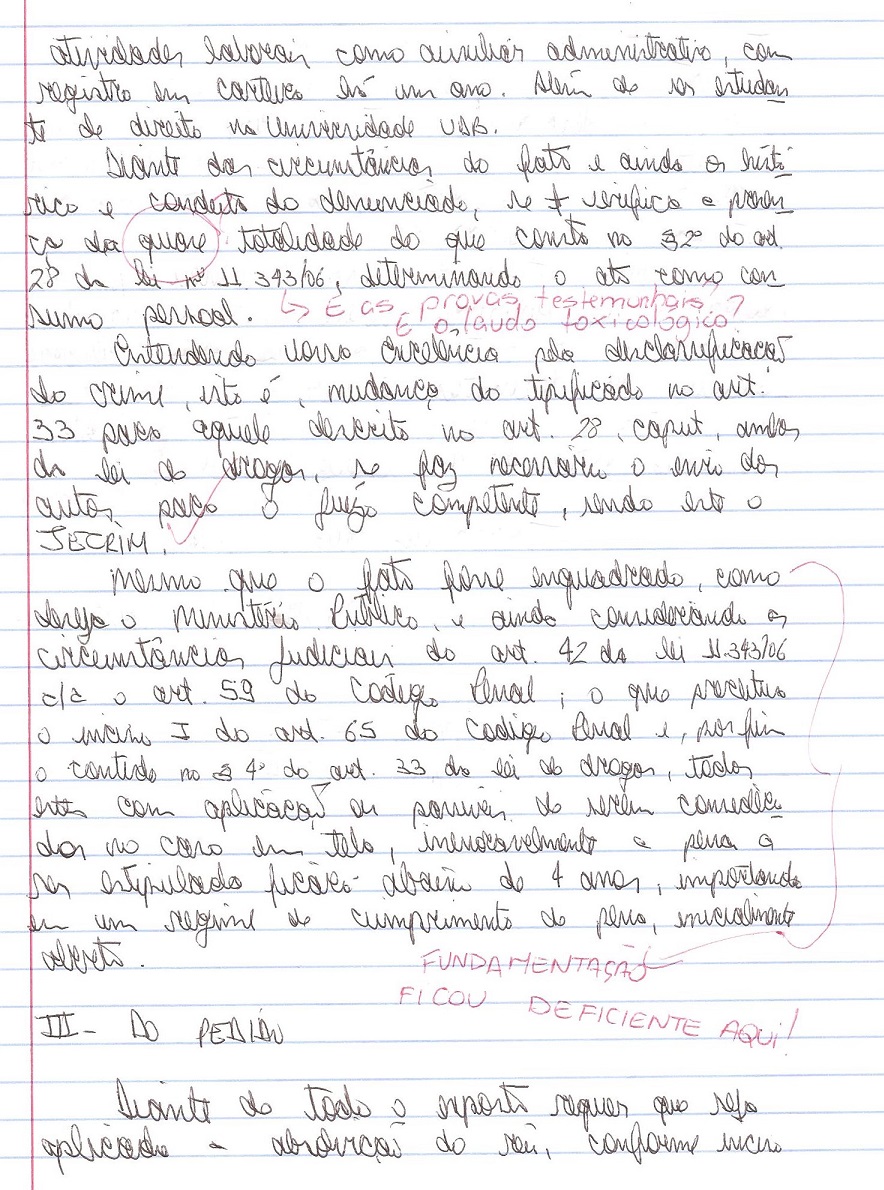 atividades laborais como auxiliar administrativo, com
registro em carteira há um ano. Além de ser estudan
te de direito na Universidade USB.
Diante das circunstâncias do fato e ainda os histó
rico e conduta do denunciado, se verifica a presen
ça da quase totalidade do que consta no § 2º do art.
28 da lei nº 11.343/06, determinando o ato como con
sumo pessoal.
↳ E as provas testemunhais?
E o laudo toxicológico?
Entendendo vossa Excelência pela desclassificação
do crime, isto é, mudança do tipificado no art.
33 para aquele descrito no art. 28, caput, ambos
da lei de drogas, se faz necessário o envio dos
autos para o juízo competente, sendo este o
JECRIM.
Mesmo que o fato fosse enquadrado, como
deseja o Ministério Público, e ainda considerando as
circunstâncias judiciais do art. 42 da lei 11.343/06
c/c o art. 59 do Código Penal; o que preceitua
o inciso I do art. 65 do Codigo Penal e, por fim
o contido no § 4º do art. 33 da lei de drogas, todos
estes com aplicação ou possíveis de serem
dos no caso em tela, a pena a
ser estipulada ficará abaixo de 4 anos, importando
em um regime de cumprimento de pena, inicialmente
aberto.
FUNDAMENTAÇÃO
FICOU DEFICIENTE AQUI!
III - DO PEDIDO
Diante de todo o exposto requer que seja
aplicada a absolvição do réu, conforme inciso